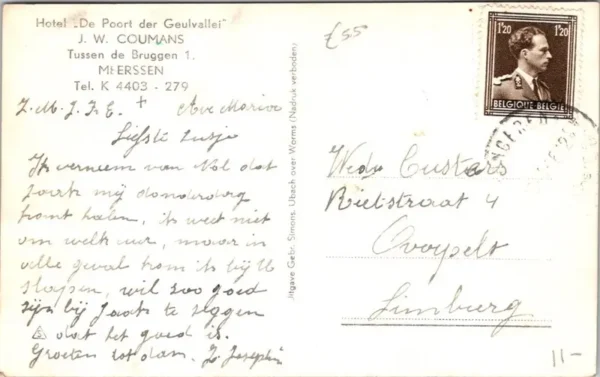 Hotel „De Poort der Geulvallei"
J. W. COUMANS
Tussen de Bruggen 1,
MEERSSEN
Tel. K 4403 - 279
£55
1'20 1'20
BELGIQUE BELGIE
J. M. J. F. E. + Ave Maria
Liefste zusje
Ik verneem van Nol dat
Jaak mij donderdag
komt halen, ik weet niet
om welk uur, maar in
elle geval kom ik bij U
slapen, wil zoo goed
zijn bij Jaak te zeggen
dat het goed is.
Groeten tot dan. Z. Josephi
Uitgave Gebr. Simons, Ubach over Worms (Nadruk verboden)
Wede Custers
Rietstraat 4
Overpelt
Limburg
11-